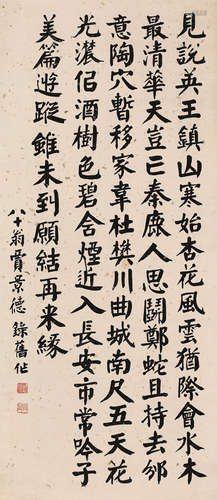 見說英王鎮山寒始杏花風雲猶際會水木
最清華天豈亡秦鹿人思鬭鄭蛇且持去邠
意陶穴暫移家韋杜樊川曲城南尺五天花
光濃佀酒樹色碧含煙近入長安市常吟子
美篇遊蹤雖未到願結再来緣
八十翁賈景德錄舊作